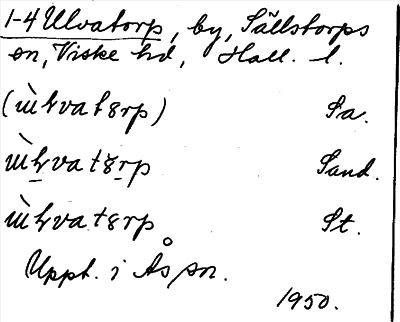 1-4 Ulvatorp, by, Sällstorps
sn, Viske hd, Hall. l.
(ù̈ɫvatɤrp) Sa.
ù̈ɫvatɤrp Sand.
ù̈ɫvatɤrp St.
Uppt. i Ås sn.
1950.